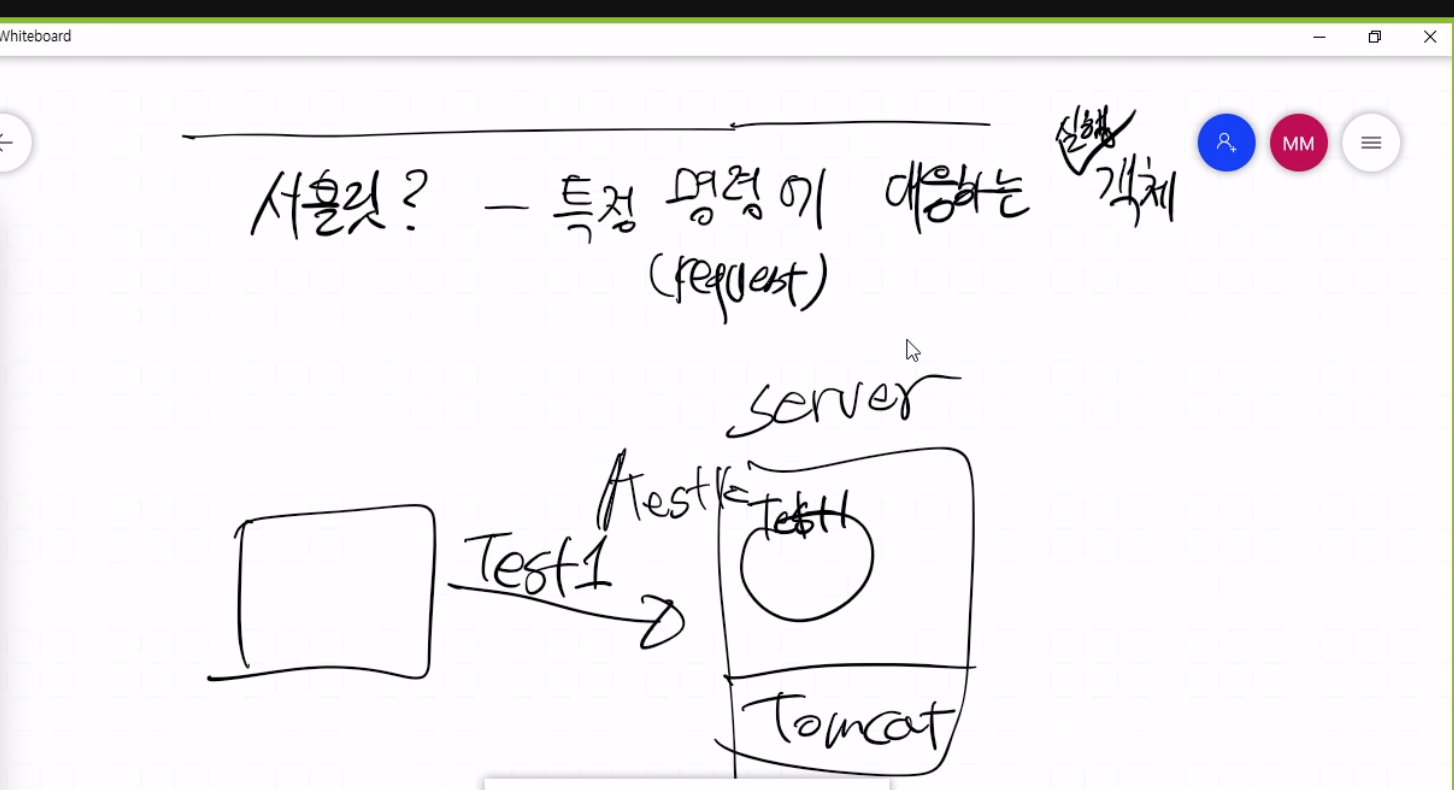 Whiteboard
MM
실행
서블릿? - 특정 명령에 대응하는 객체
(request)
server
Test1
Test1
Tomcat